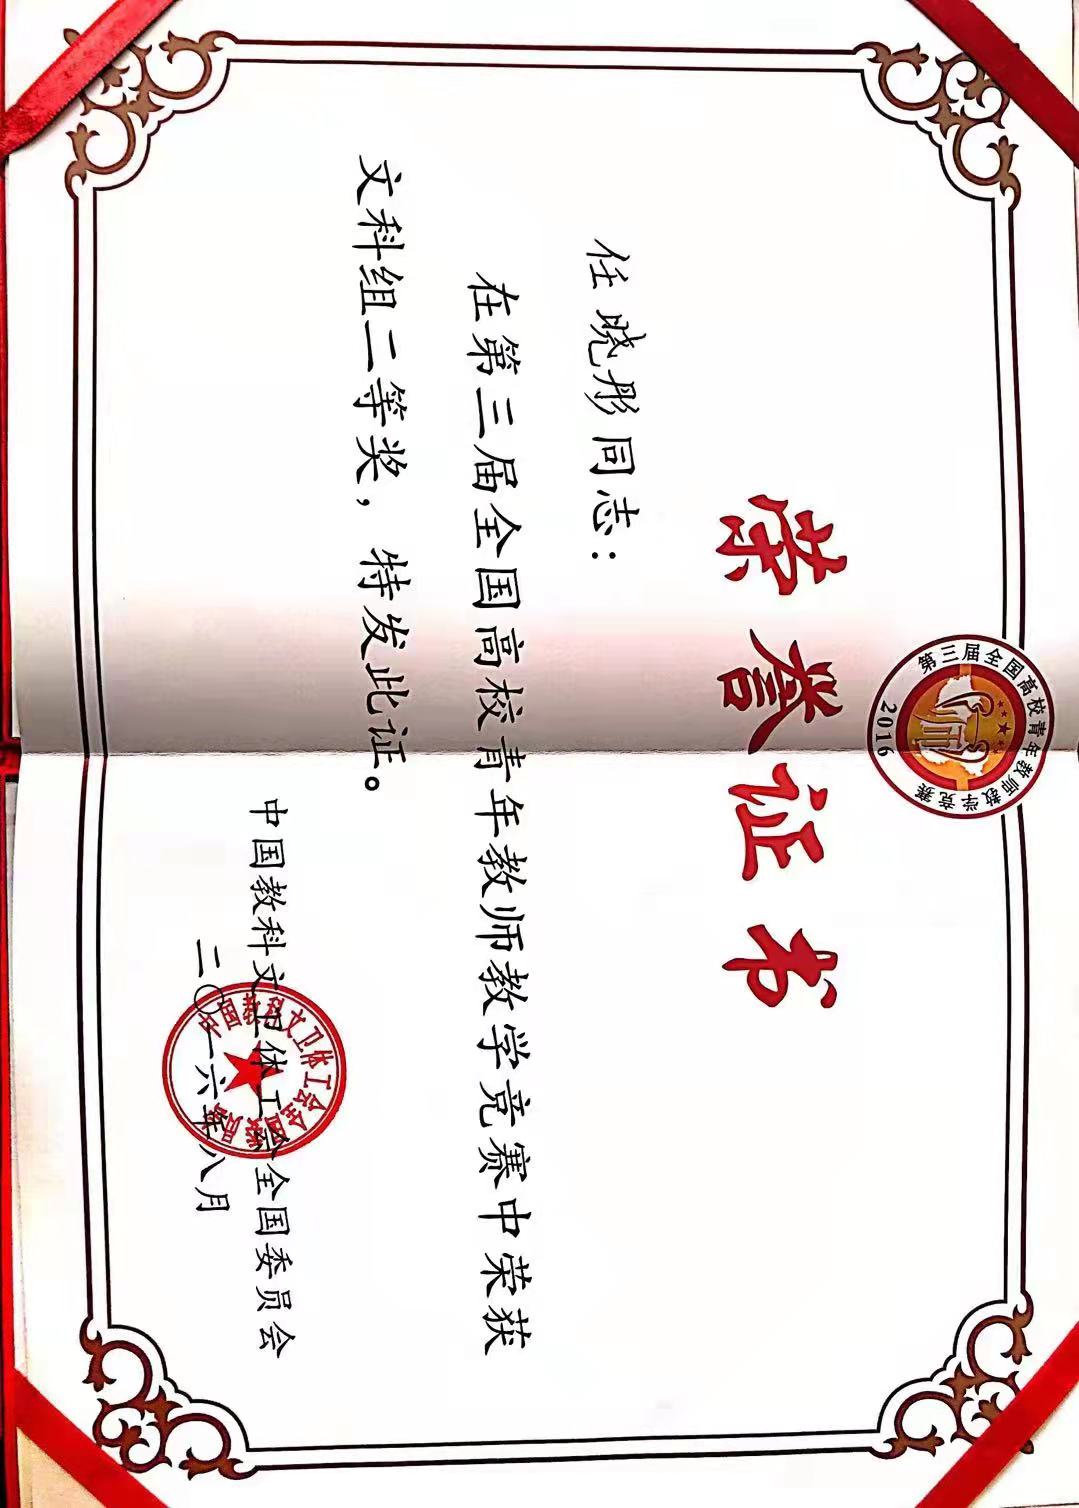 第三届全国高校青年教师教学竞赛
2016
荣誉证书
任晓彤同志：
在第三届全国高校青年教师教学竞赛中荣获
文科组二等奖，特发此证。
中国教科文卫体工会全国委员会
二〇一六年八月
中国教科文卫体工会全国委员会